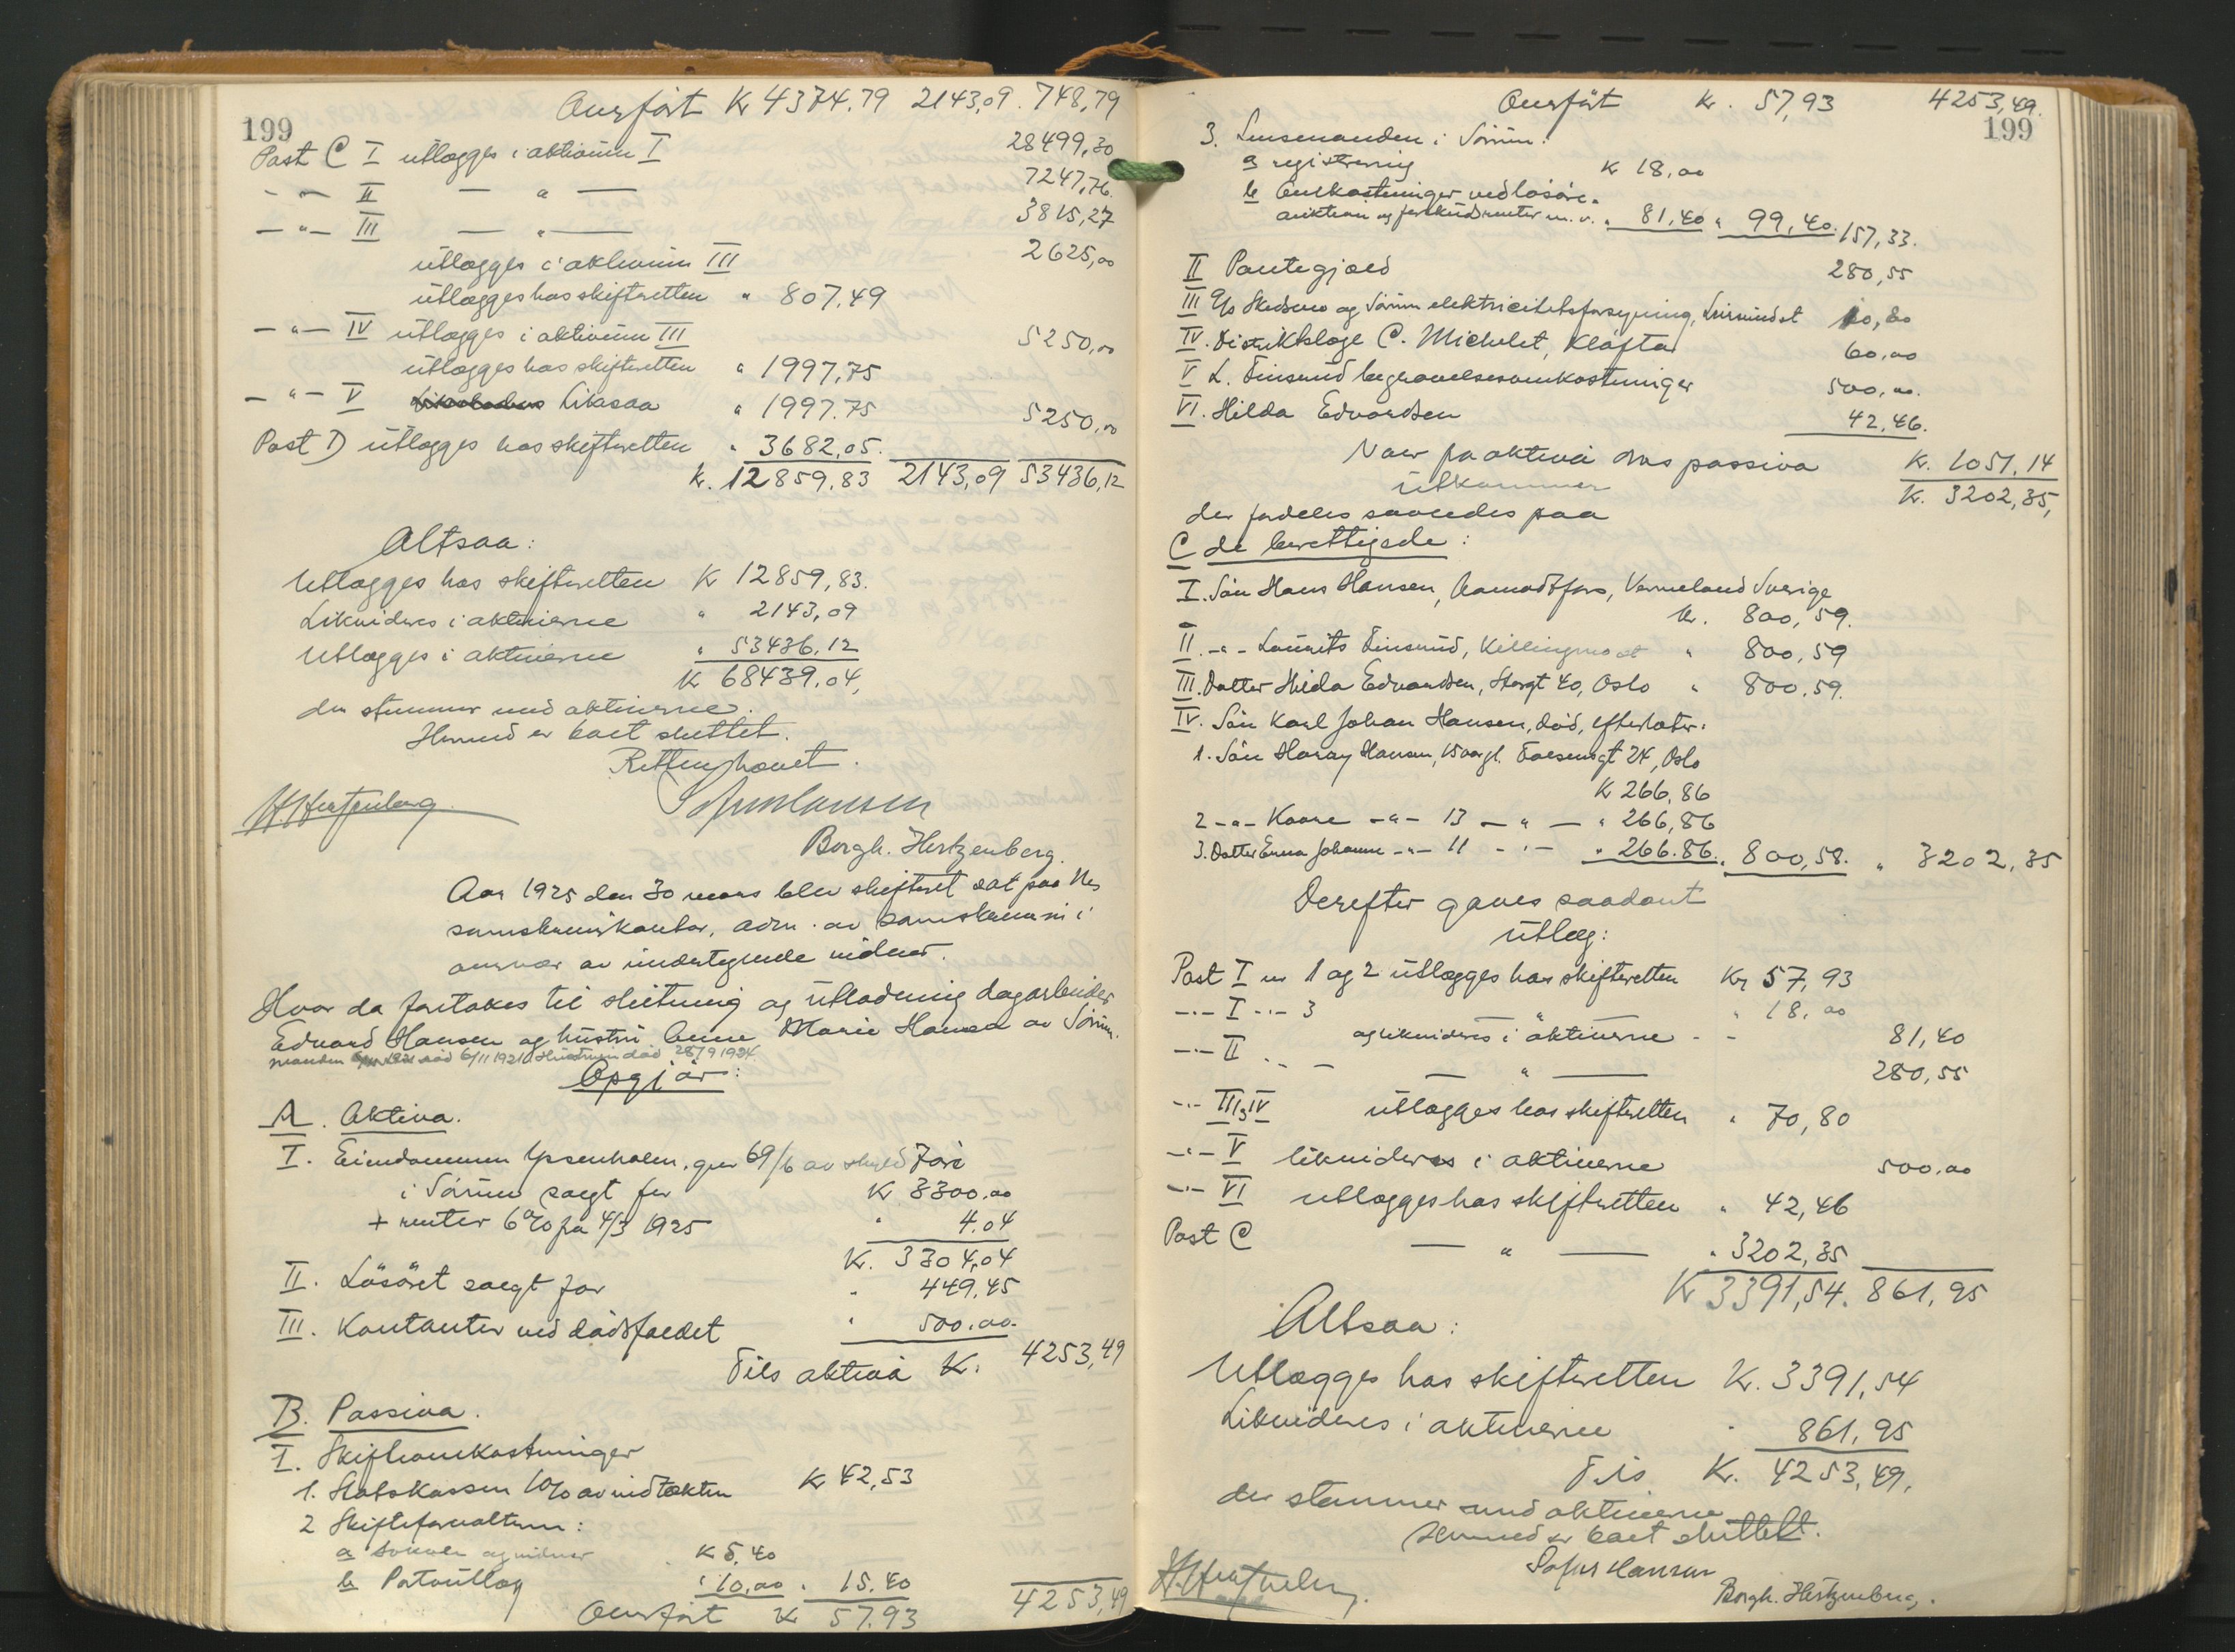 199
Overført Kr 4374.79 2143,09 . 748,79
Post C I utlægges i aktivum I 28499,30
- " - II — " — 7247,76
- " - III — " — 3815,27
utlægges i aktivum III 2625,00
utlægges hos skifteretten " 807.49
- " - IV utlægges i aktivum III 5250,00
utlægges hos skifteretten " 1997,75
- " - V Likesaa " 1997.75 5250,00
Post D utlægges hos skifteretten " 3682,05.
Kr. 12859.83 2143,09 53436,12
Altsaa:
Utlægges hos skifteretten Kr 12859,83.
Likvideres i aktiverne " 2143,09
Utlægges i aktiverne " 53436.12
Kr 68439.04,
der stemmer med aktiverne.
Hermed er boet sluttet.
Retten hævet.
H. Hertzenberg. Sofus Hansen
Borgh. Hertzenberg.
Aar 1925 den 30 mars blev skifteret sat paa Nes
sorenskriverkontor, adm. av sorenskriveren i
overvær av undertegnede vidner.
Hvor da foretokes til slutning og utlodning dagarbeider
Edvard Hansen og hustru Anne Marie Hansen av Sørum.
manden død 6/11 1921 Hustruen død 28/9 1924
Opgjør:
A. Aktiva.
I. Eiendommen Ypsenholen, gnr 69/6 av skyld 7 øre
i Sørum solgt for Kr 3300.00
+ renter 6% fra 4/3 1925 " 4.04
Kr. 3304,04
II. Løsøret solgt for " 449,45
III. Kontanter ved dødsfaldet " 500.00.
Tils aktiva Kr. 4253,49
B. Passiva.
I. Skifteomkostninger
1. Statskassen 1% av indtækten Kr 42,53
2 Skifteforvalteren:
a skriver og vidner Kr 5,40
b Portoutlæg " 10,00 " 15.40
Overført Kr 57.93 4253,49
Overført Kr. 57,93 4253,49.
199
3. Lensmanden i Sørum:
a registrering Kr 18,00
b Omkostninger ved løsøre-
auktion og forskudsrenter m.v. " 81,40 " 99,40. 157,33.
II Pantegjæld 280,55
III A/s Skedsmo og Sørum elektricitetsforsyning, Lørenfald 10,80
IV. Distriktslæge C. Michelet, Kløfta 60.00
V L. Finsrud begravelsesomkostninger 500,00.
VI. Hilda Edvardsen 42,46.
Naar fra aktiva dras passiva Kr. 1051,14
utkommer Kr. 3202,35,
der fordeles saaledes paa
C de berettigede:
I. Søn Hans Hansen, Aamodtfors, Vermeland Sverige
Kr. 800,59.
II. - " - Laurits Finsrud, Killingmoat " 800,59
III. Datter Hilda Edvardsen, Storgt 40, Oslo " 800,59.
IV. Søn Karl Johan Hansen, død, efterlater:
1. Søn Harry Hansen, 15 aar gl. Toesensgt 24, Oslo
Kr 266,86
2 - " - Kaare - " - 13 — " — " 266,86
3. Datter Erna Johanne - " - 11 - " - " 266.86. " 800,58. " 3202,35
Derefter gaves saadant
utlæg:
Post I nr 1 og 2 utlægges hos skifteretten Kr 57,93
- " - I - " - 3 " " 18,00
og likvideres i aktiverne - - 81,40
- " - II - - — " — 280,55
- " - III, IV utlægges hos skifteretten " 70,80
- " - V likvideres i aktiverne 500.00
- " - VI utlægges hos skifteretten " 42,46
Post C — " — " 3202,35
Kr 3391,54. 861,95
Altsaa:
Utlægges hos skifteretten Kr. 3391,54
Likvideres i aktiverne " 861,95
Tils Kr. 4253,49.
der stemmer med aktiverne
Hermed er boet sluttet.
Sofus Hansen
H. Hertzenberg. Borgh. Hertzenberg.